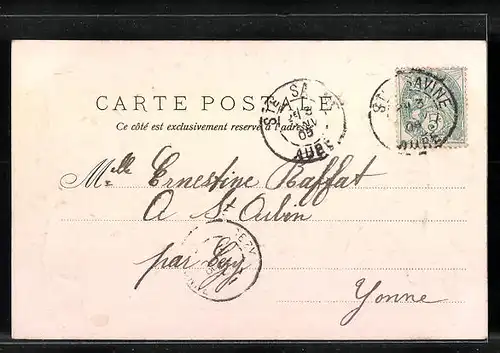 CARTE POSTALE
Ce côté est exclusivement réservé à l'adresse
STE SAVINE
AUBE
STE SAVINE
05
AUBE
5
Melle Ernestine Raffat
A St Aubin
par Cézy
CEZY
Yonne